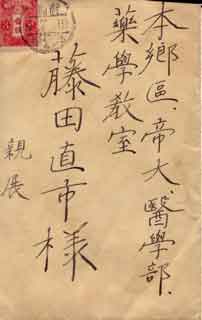 本鄉區、帝大、醫學部、
藥學教室
藤田直市様
親展